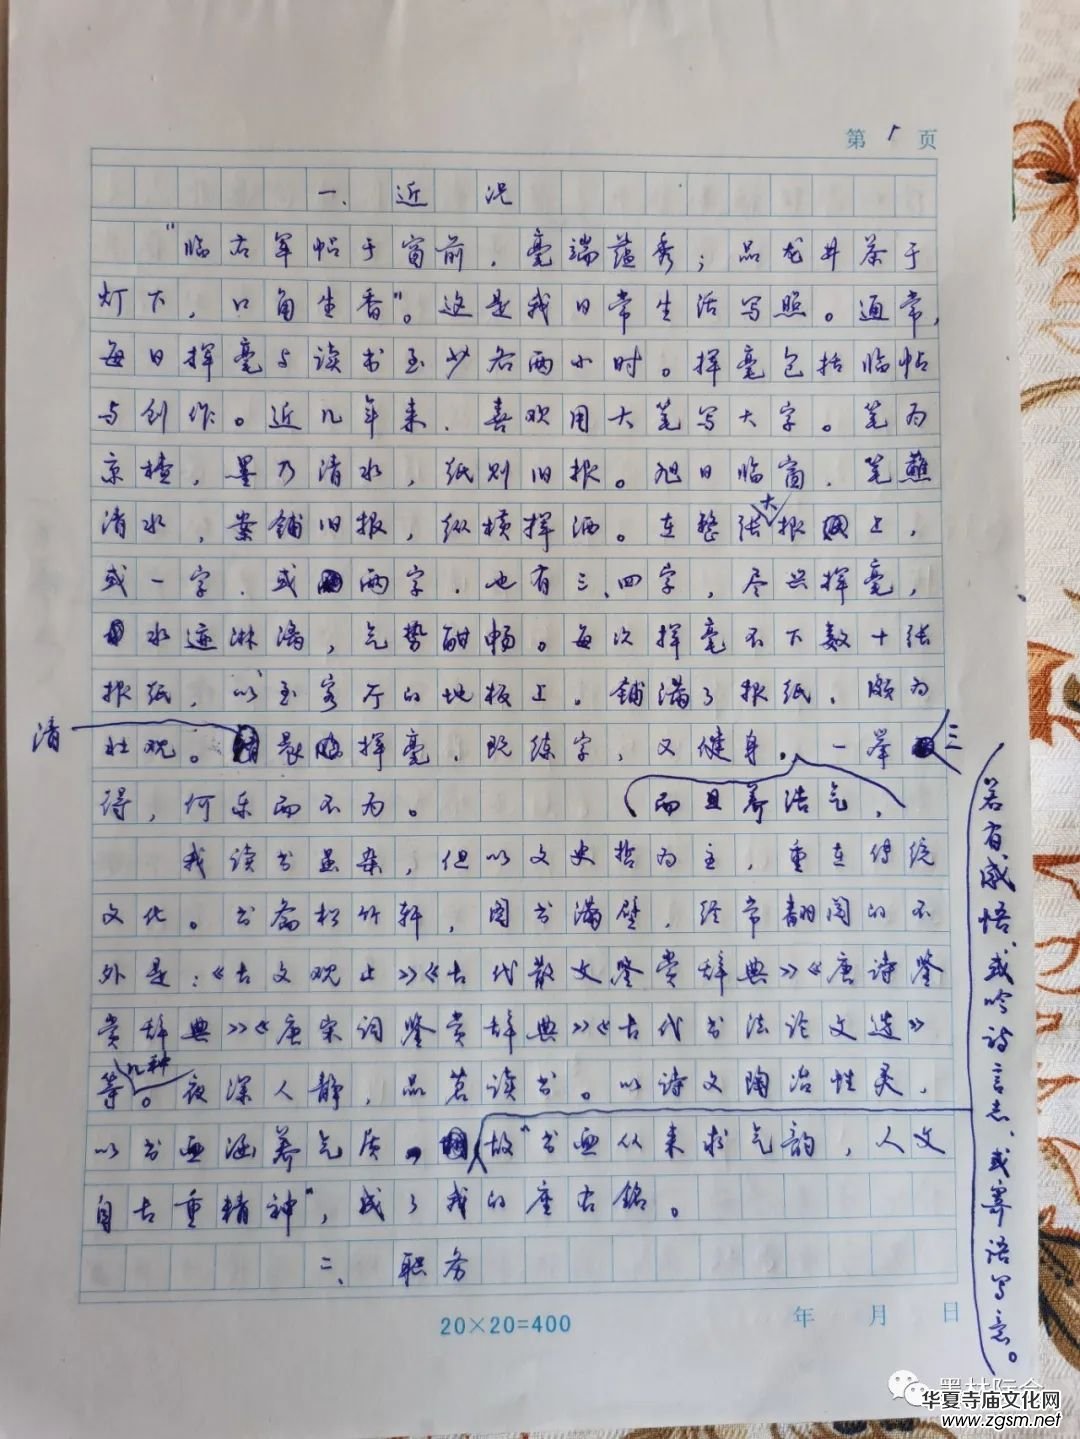 第 1 页
一、近况
“临右军帖于窗前，毫端蕴秀；品龙井茶于
灯下，口角生香”。这是我日常生活写照。通常，
每日挥毫与读书至少各两小时。挥毫包括临帖
与创作。近几年来，喜欢用大笔写大字。笔为
京楂，墨乃清水，纸则旧报。旭日临窗，笔蘸
清水，案铺旧报，纵横挥洒。在整张大报上，
或一字、或两字，也有三、四字，尽兴挥毫，
水迹淋漓，气势酣畅。每次挥毫不下数十张
报纸，以至客厅的地板上，铺满了报纸，颇为
壮观。清晨挥毫，既练字，又健身，而且养浩气，一举三
得，何乐而不为。
我读书虽杂，但以文史哲为主，重在传统
文化。书斋松竹轩，图书满壁，经常翻阅的不
外是：《古文观止》《古代散文鉴赏辞典》《唐诗鉴
赏辞典》《唐宋词鉴赏辞典》《古代书法论文选》
等几种。夜深人静，品茗读书。以诗文陶冶性灵，
以书画涵养气质。若有感悟、或吟诗言志、或寄语写意。故“书画从来求气韵，人文
自古重精神”，成了我的座右铭。
二、职务
20×20=400
年 月 日
墨林际会
华夏寺庙文化网
www.zgsm.net